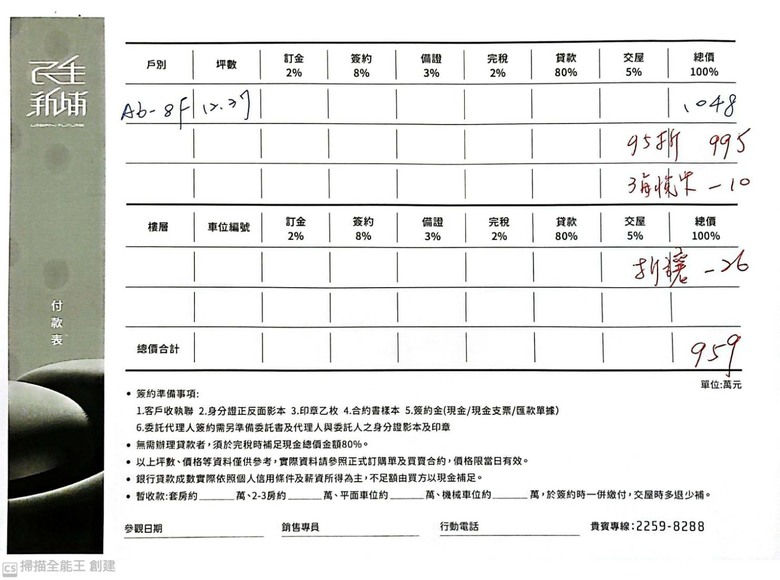 民生
新埔
URBAN FUTURE
付款表
戶別 坪數 訂金 2% 簽約 8% 備證 3% 完稅 2% 貸款 80% 交屋 5% 總價 100%
A6-8F 12.37 1048
95折 995
-10
樓層 車位編號 訂金 2% 簽約 8% 備證 3% 完稅 2% 貸款 80% 交屋 5% 總價 100%
-26
總價合計 959
單位:萬元
• 簽約準備事項:
1.客戶收執聯 2.身分證正反面影本 3.印章乙枚 4.合約書樣本 5.簽約金(現金/現金支票/匯款單據)
6.委託代理人簽約需另準備委託書及代理人與委託人之身分證影本及印章
• 無需辦理貸款者,須於完稅時補足現金總價金額80%。
• 以上坪數、價格等資料僅供參考,實際資料請參照正式訂購單及買賣合約,價格限當日有效。
• 銀行貸款成數實際依照個人信用條件及薪資所得為主,不足額由買方以現金補足。
• 暫收款:套房約______萬、2-3房約______萬、平面車位約______萬、機械車位約______萬,於簽約時一併繳付,交屋時多退少補。
參觀日期 銷售專員 行動電話 貴賓專線:2259-8288
CS 掃描全能王 創建